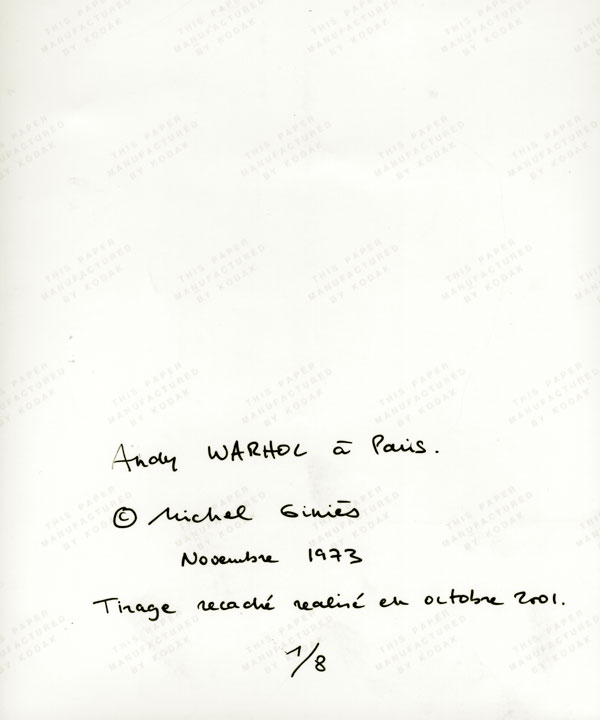 THIS PAPER
MANUFACTURED
BY KODAK
Andy WARHOL à Paris.
© Michel Giniès
Novembre 1973
Tirage recaché realisé en octobre 2001.
1/8